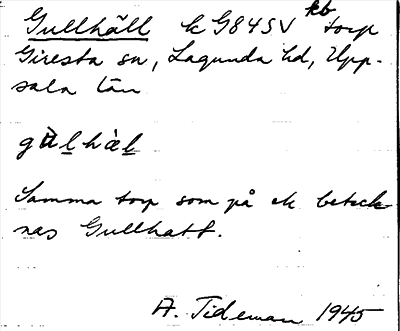 Gullhäll k G84SV kb torp
Giresta sn, Lagunda hd, Upp-
sala län
gùlhàl
Samma torp som på ek beteck-
nas Gullhatt.
A. Tideman 1945